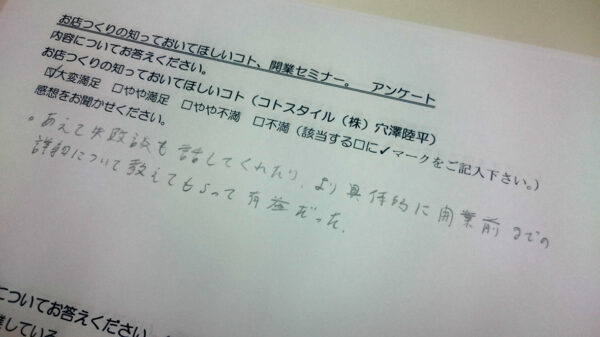 お店つくりの知っておいてほしいコト、開業セミナー。　アンケート
内容についてお答えください。
お店つくりの知っておいてほしいコト（コトスタイル（株）穴澤陸平）
☑大変満足　□やや満足　□やや不満　□不満（該当する□に✓マークをご記入下さい。）
感想をお聞かせください。
・あえて失敗談も話してくれたり、より具体的に開業前までの
詳細について教えてもらって有益だった。
についてお答えください